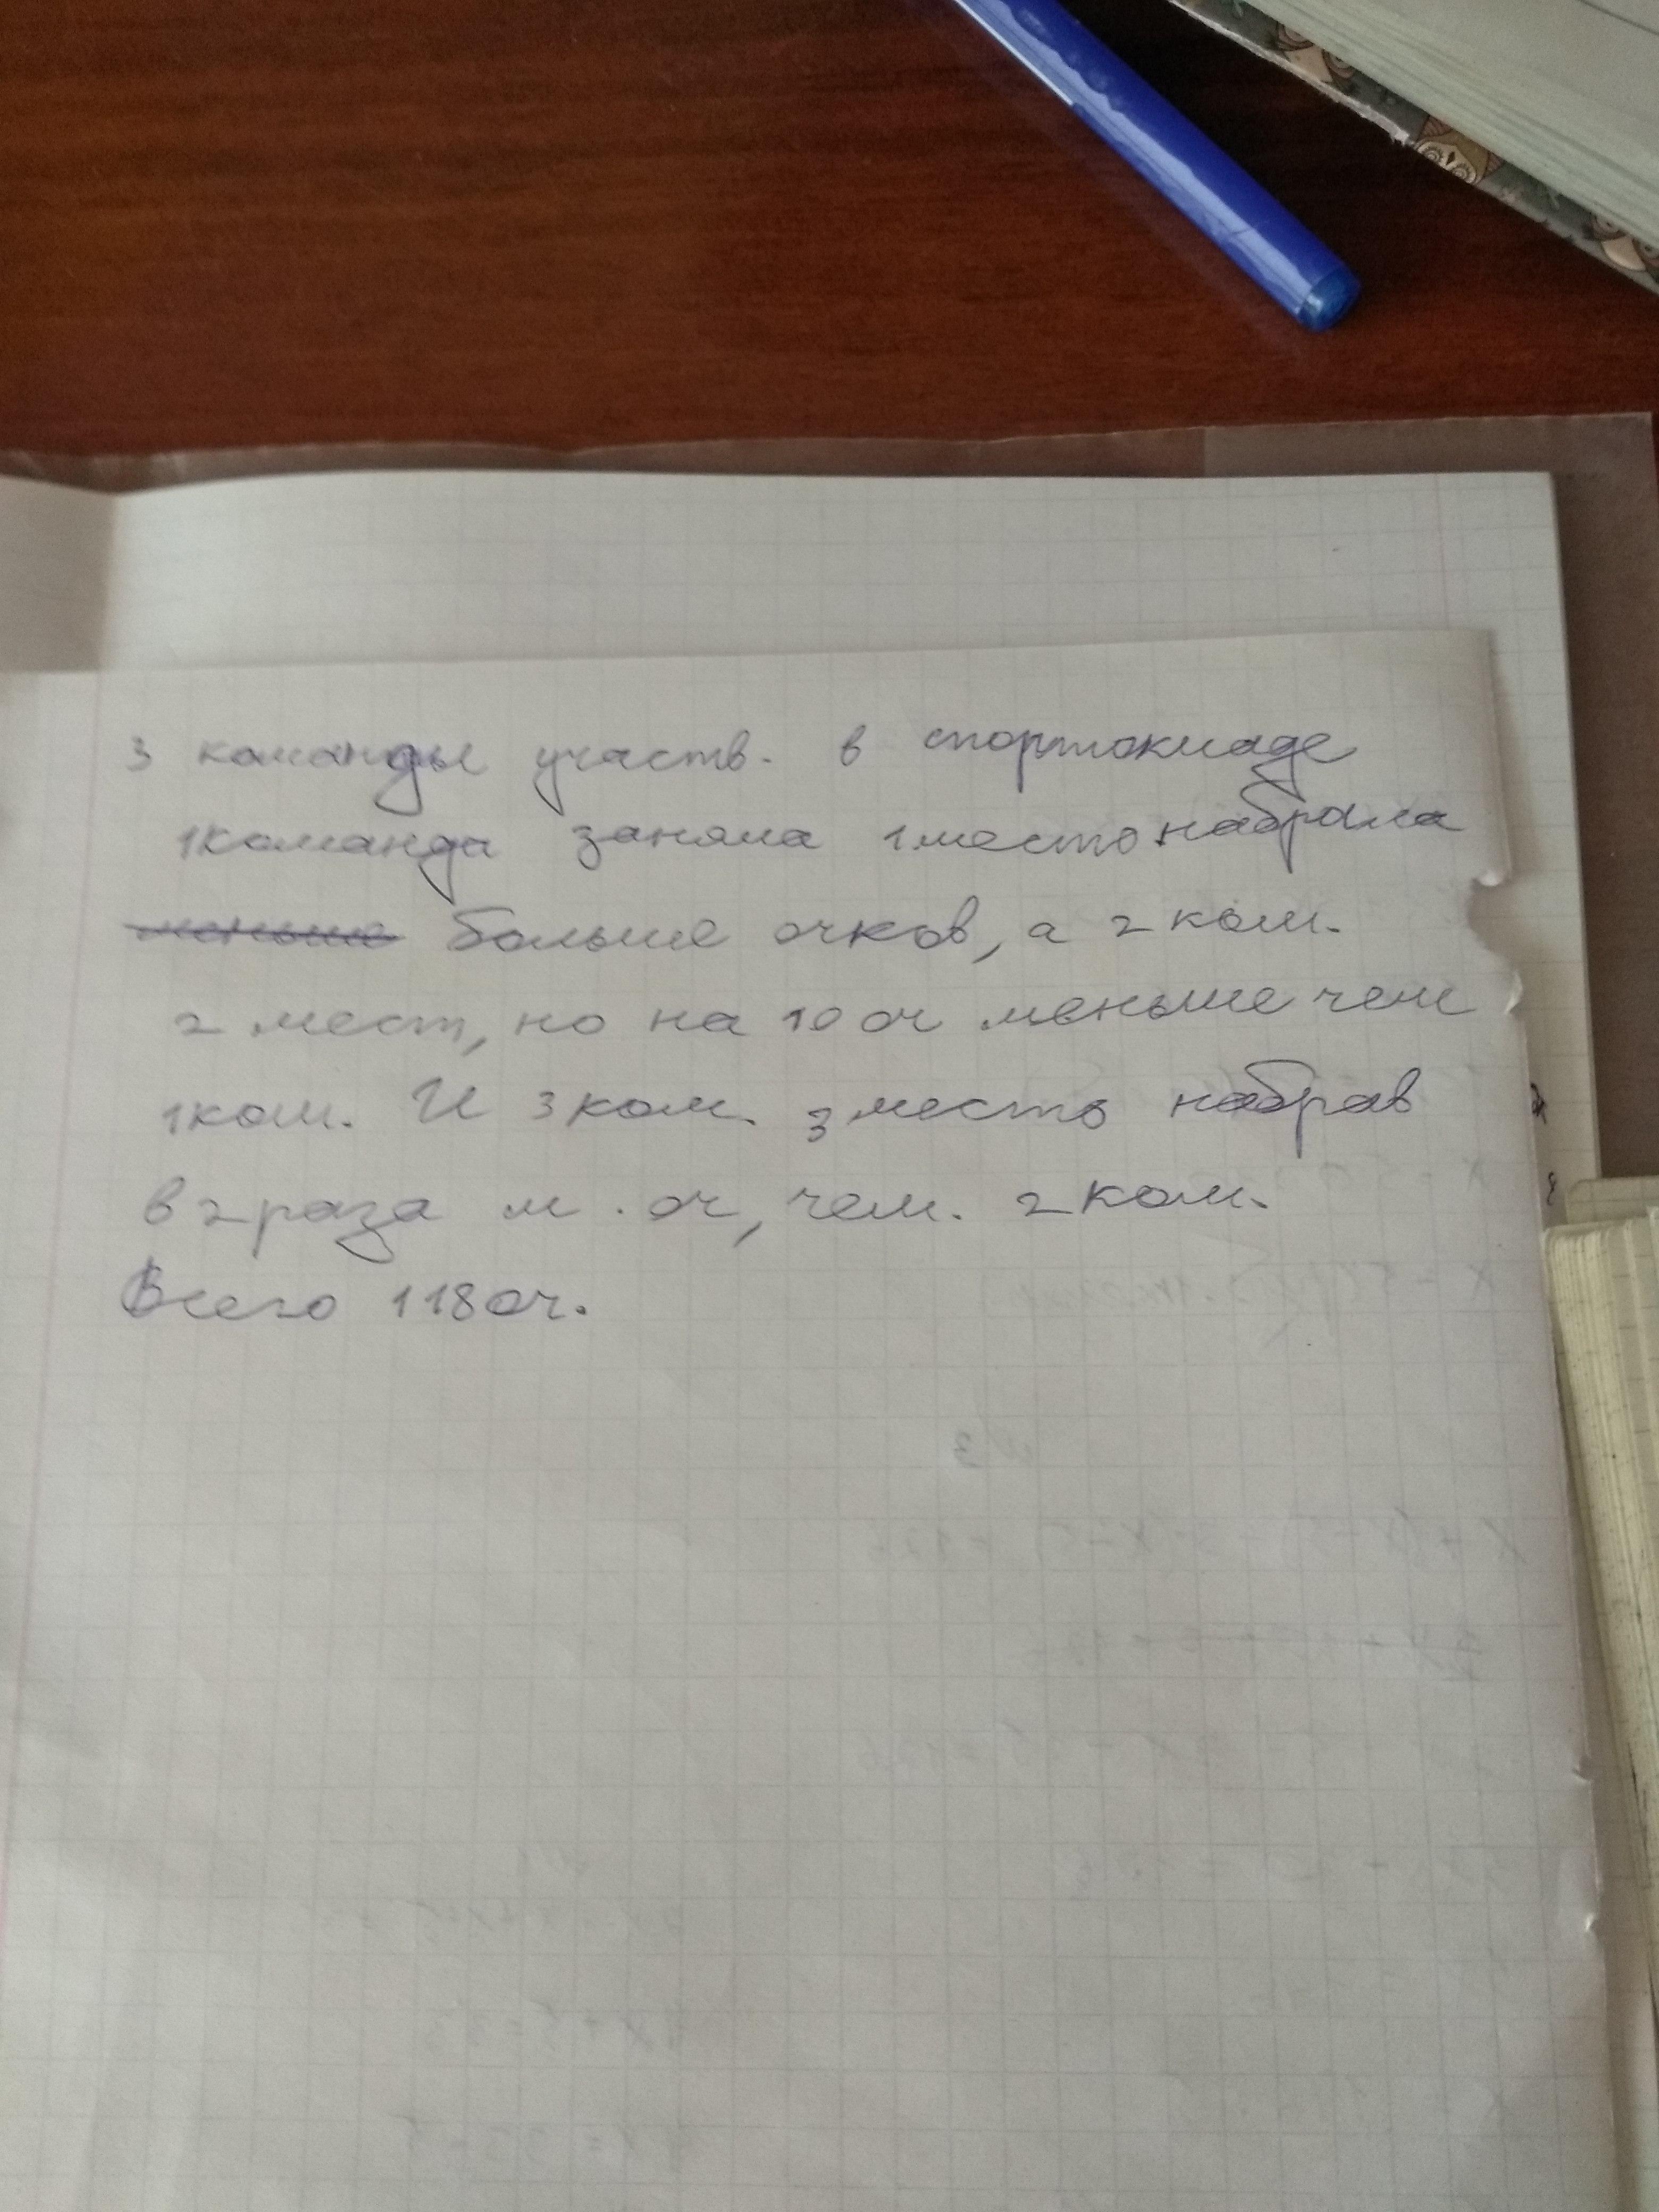 3 команды участв. в спортокиаде
1 команда заняла 1 место набрала
меньше больше очков, а 2 ком.
2 мест, но на 10 оч меньше чем
1 ком. И 3 ком. 3 место набрав
в 2 раза м. оч, чем. 2 ком.
Всего 118 оч.